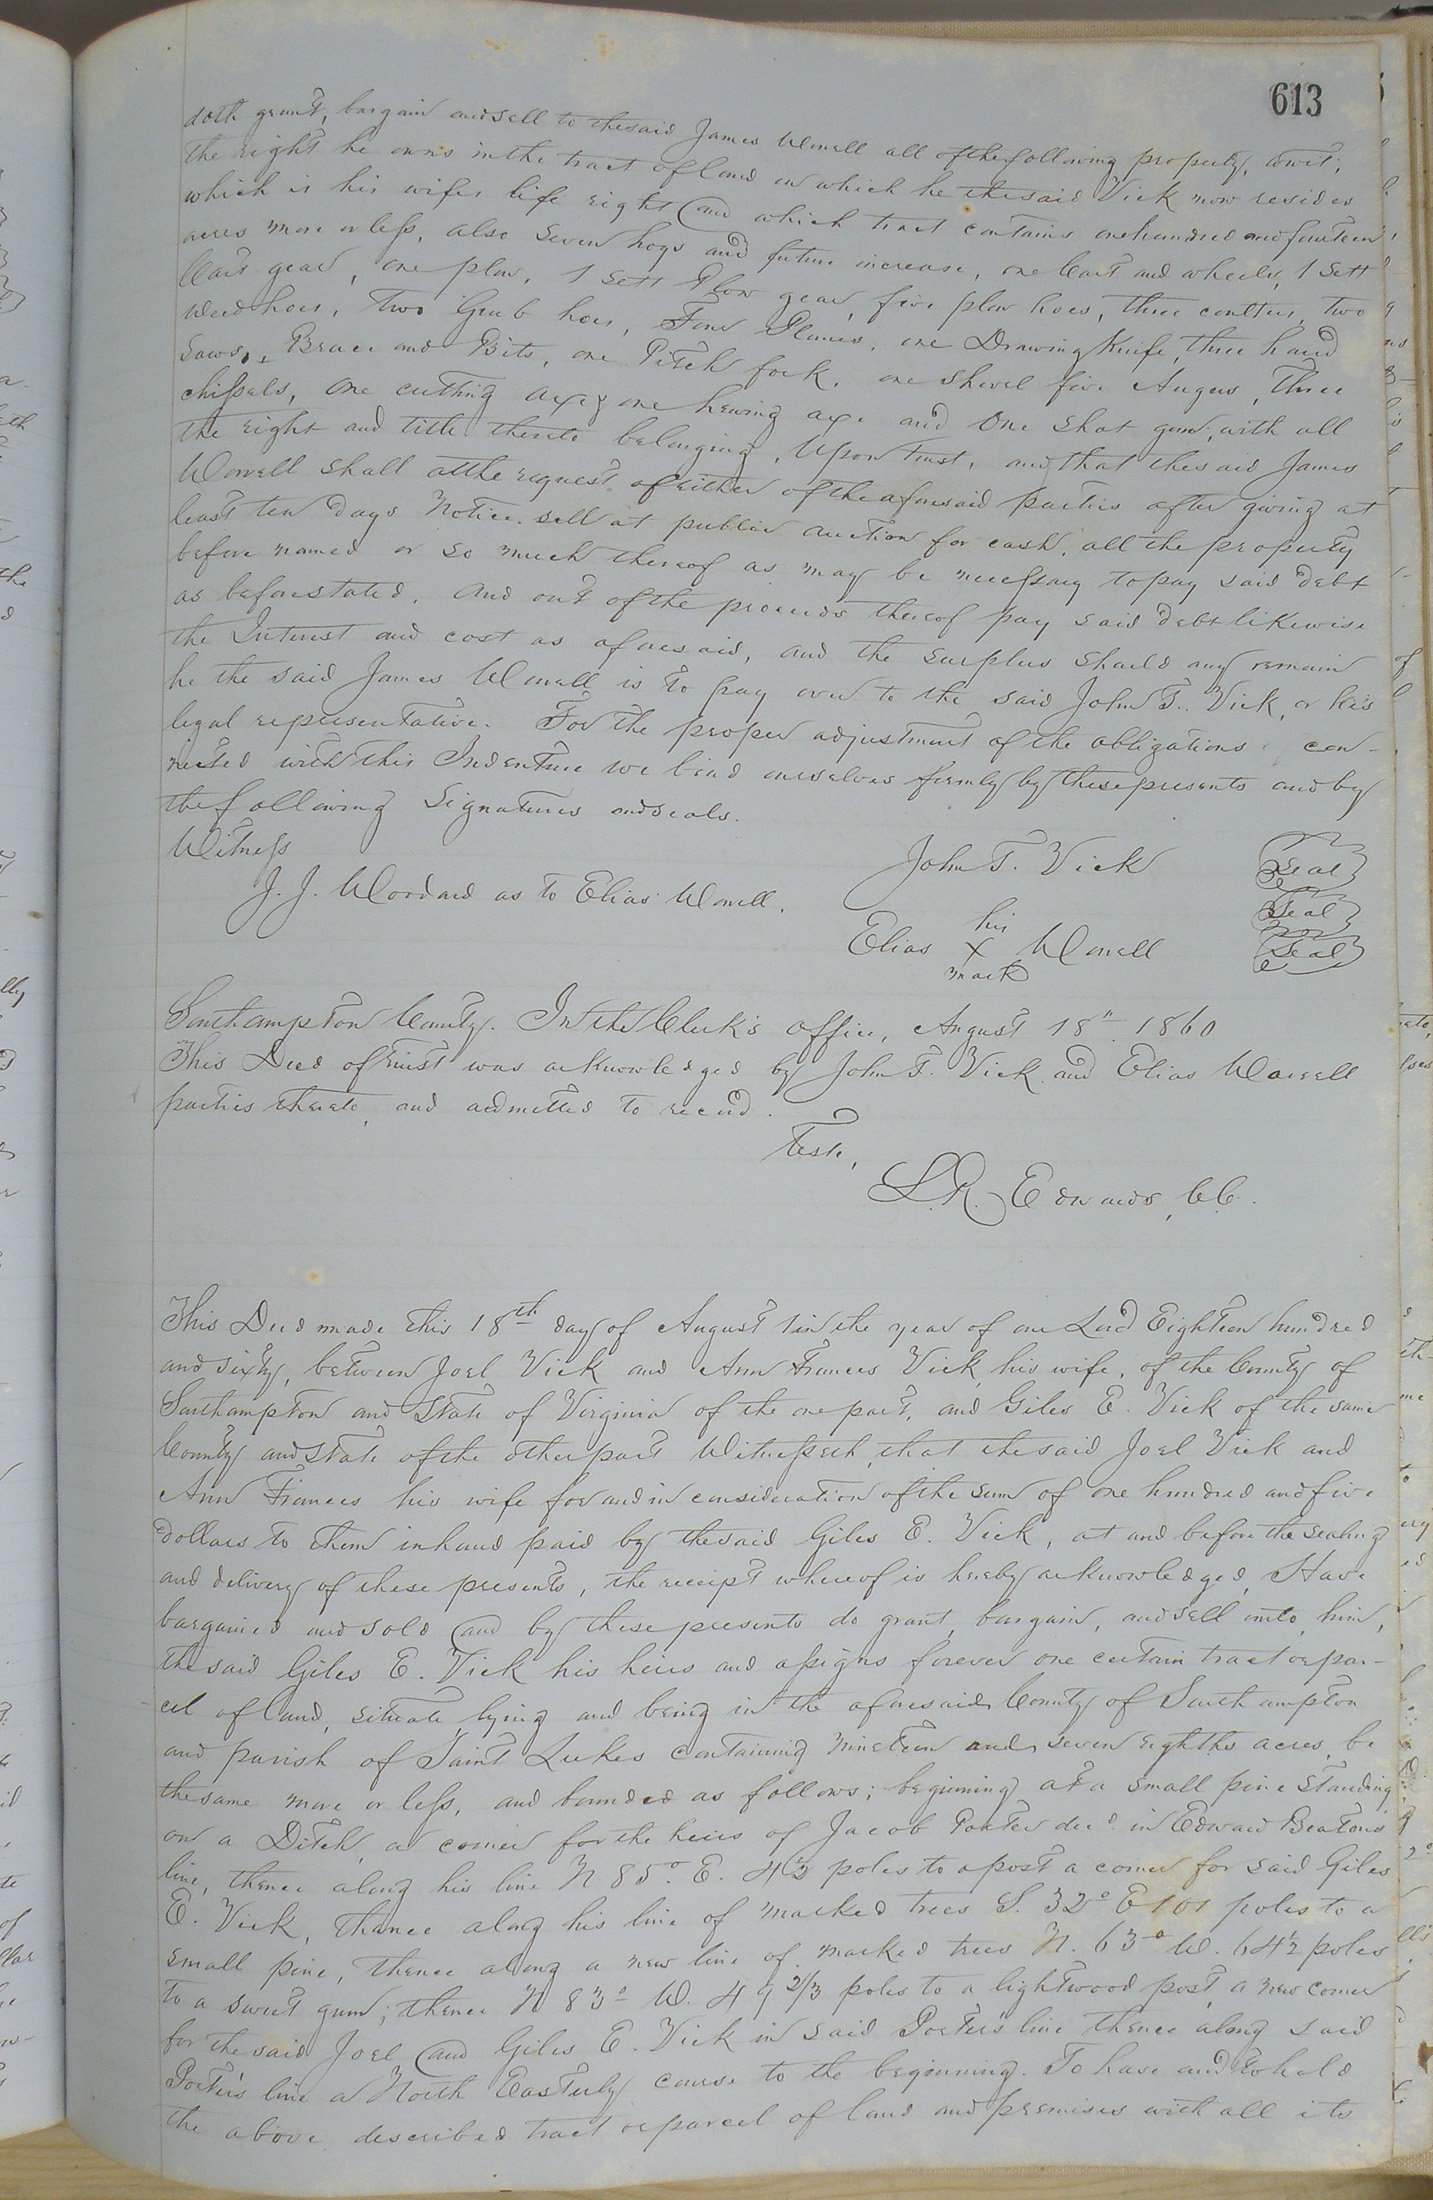 613
doth grant, bargain and sell to the said James Worrell all of the following property, towit;
the right he owns in the tract of land on which he the said Vick now resides
which is his wifes life right and which tract contains one hundred and fourteen
acres more or less, also Seven hogs and future increase, one Cart and wheels, 1 Sett
Cart gear, one plow, 1 Sett Plow gear, five plow hoes, three coulters, two
weed hoes, Two Grub hoes, Four Planes, one Drawing Knife, three hand
Saws, Brace and Bits, one Pitch fork, one shovel five Augers, Three
chissels, one cutting axe & one hewing axe and One shot gun, with all
the right and title thereto belonging, Upon trust, and that the said James
Worrell shall at the request of either of the aforesaid parties after giving at
least ten days Notice sell at public auction for cash, all the property
before named or so much thereof as may be necessary to pay said debt
as before stated, and out of the proceeds thereof pay said debt likewise
the Interest and cost as aforesaid, and the surplus should any remain
he the said James Worrell is to pay over to the said John T. Vick, or his
legal representative. For the proper adjustment of the obligations con-
nected with this Indenture we bind ourselves firmly by these presents and by
the following Signatures and seals.
Witness John T. Vick Seal
J. J. Woodard as to Elias Worrell. Seal
his
Elias X Worrell Seal
mark
Southampton County. In the Clerk's office, August 18" 1860
This Deed of Trust was acknowledged by John T. Vick and Elias Worrell
parties thereto, and admitted to record.
Teste,
L. R. Edwards, CC.
This Deed made this 18th day of August in the year of our Lord Eighteen hundred
and sixty, between Joel Vick and Ann Frances Vick his wife, of the County of
Southampton and State of Virginia of the one part, and Giles E. Vick of the same
County and State of the other part Witnesseth, that the said Joel Vick and
Ann Frances his wife for and in consideration of the sum of one hundred and five
dollars to them in hand paid by the said Giles E. Vick, at and before the sealing
and delivery of these presents, the receipt whereof is hereby acknowledged, Have
bargained and sold and by these presents do grant, bargain, and sell unto him,
the said Giles E. Vick his heirs and assigns forever one certain tract or par-
cel of land, situate, lying and being in the aforesaid County of Southampton
and parish of Saint Lukes containing Nineteen and seven eighths acres, be
the same more or less, and bounded as follows; beginning at a small pine standing
on a Ditch, a corner for the heirs of Jacob Porter decd. in Edward Beatons
line, thence along his line N 85° E. 4½ poles to a post a corner for said Giles
E. Vick, thence along his line of marked trees S. 32° E 101 poles to a
small pine, thence along a new line of marked trees N. 63° W. 64½ poles
to a sweet gum; thence N 83° W. 49 2/3 poles to a lightwood post, a new corner
for the said Joel and Giles E. Vick in said Porter's line thence along said
Porter's line a North Easterly course to the beginning. To have and to hold
the above described tract or parcel of land and premises with all its